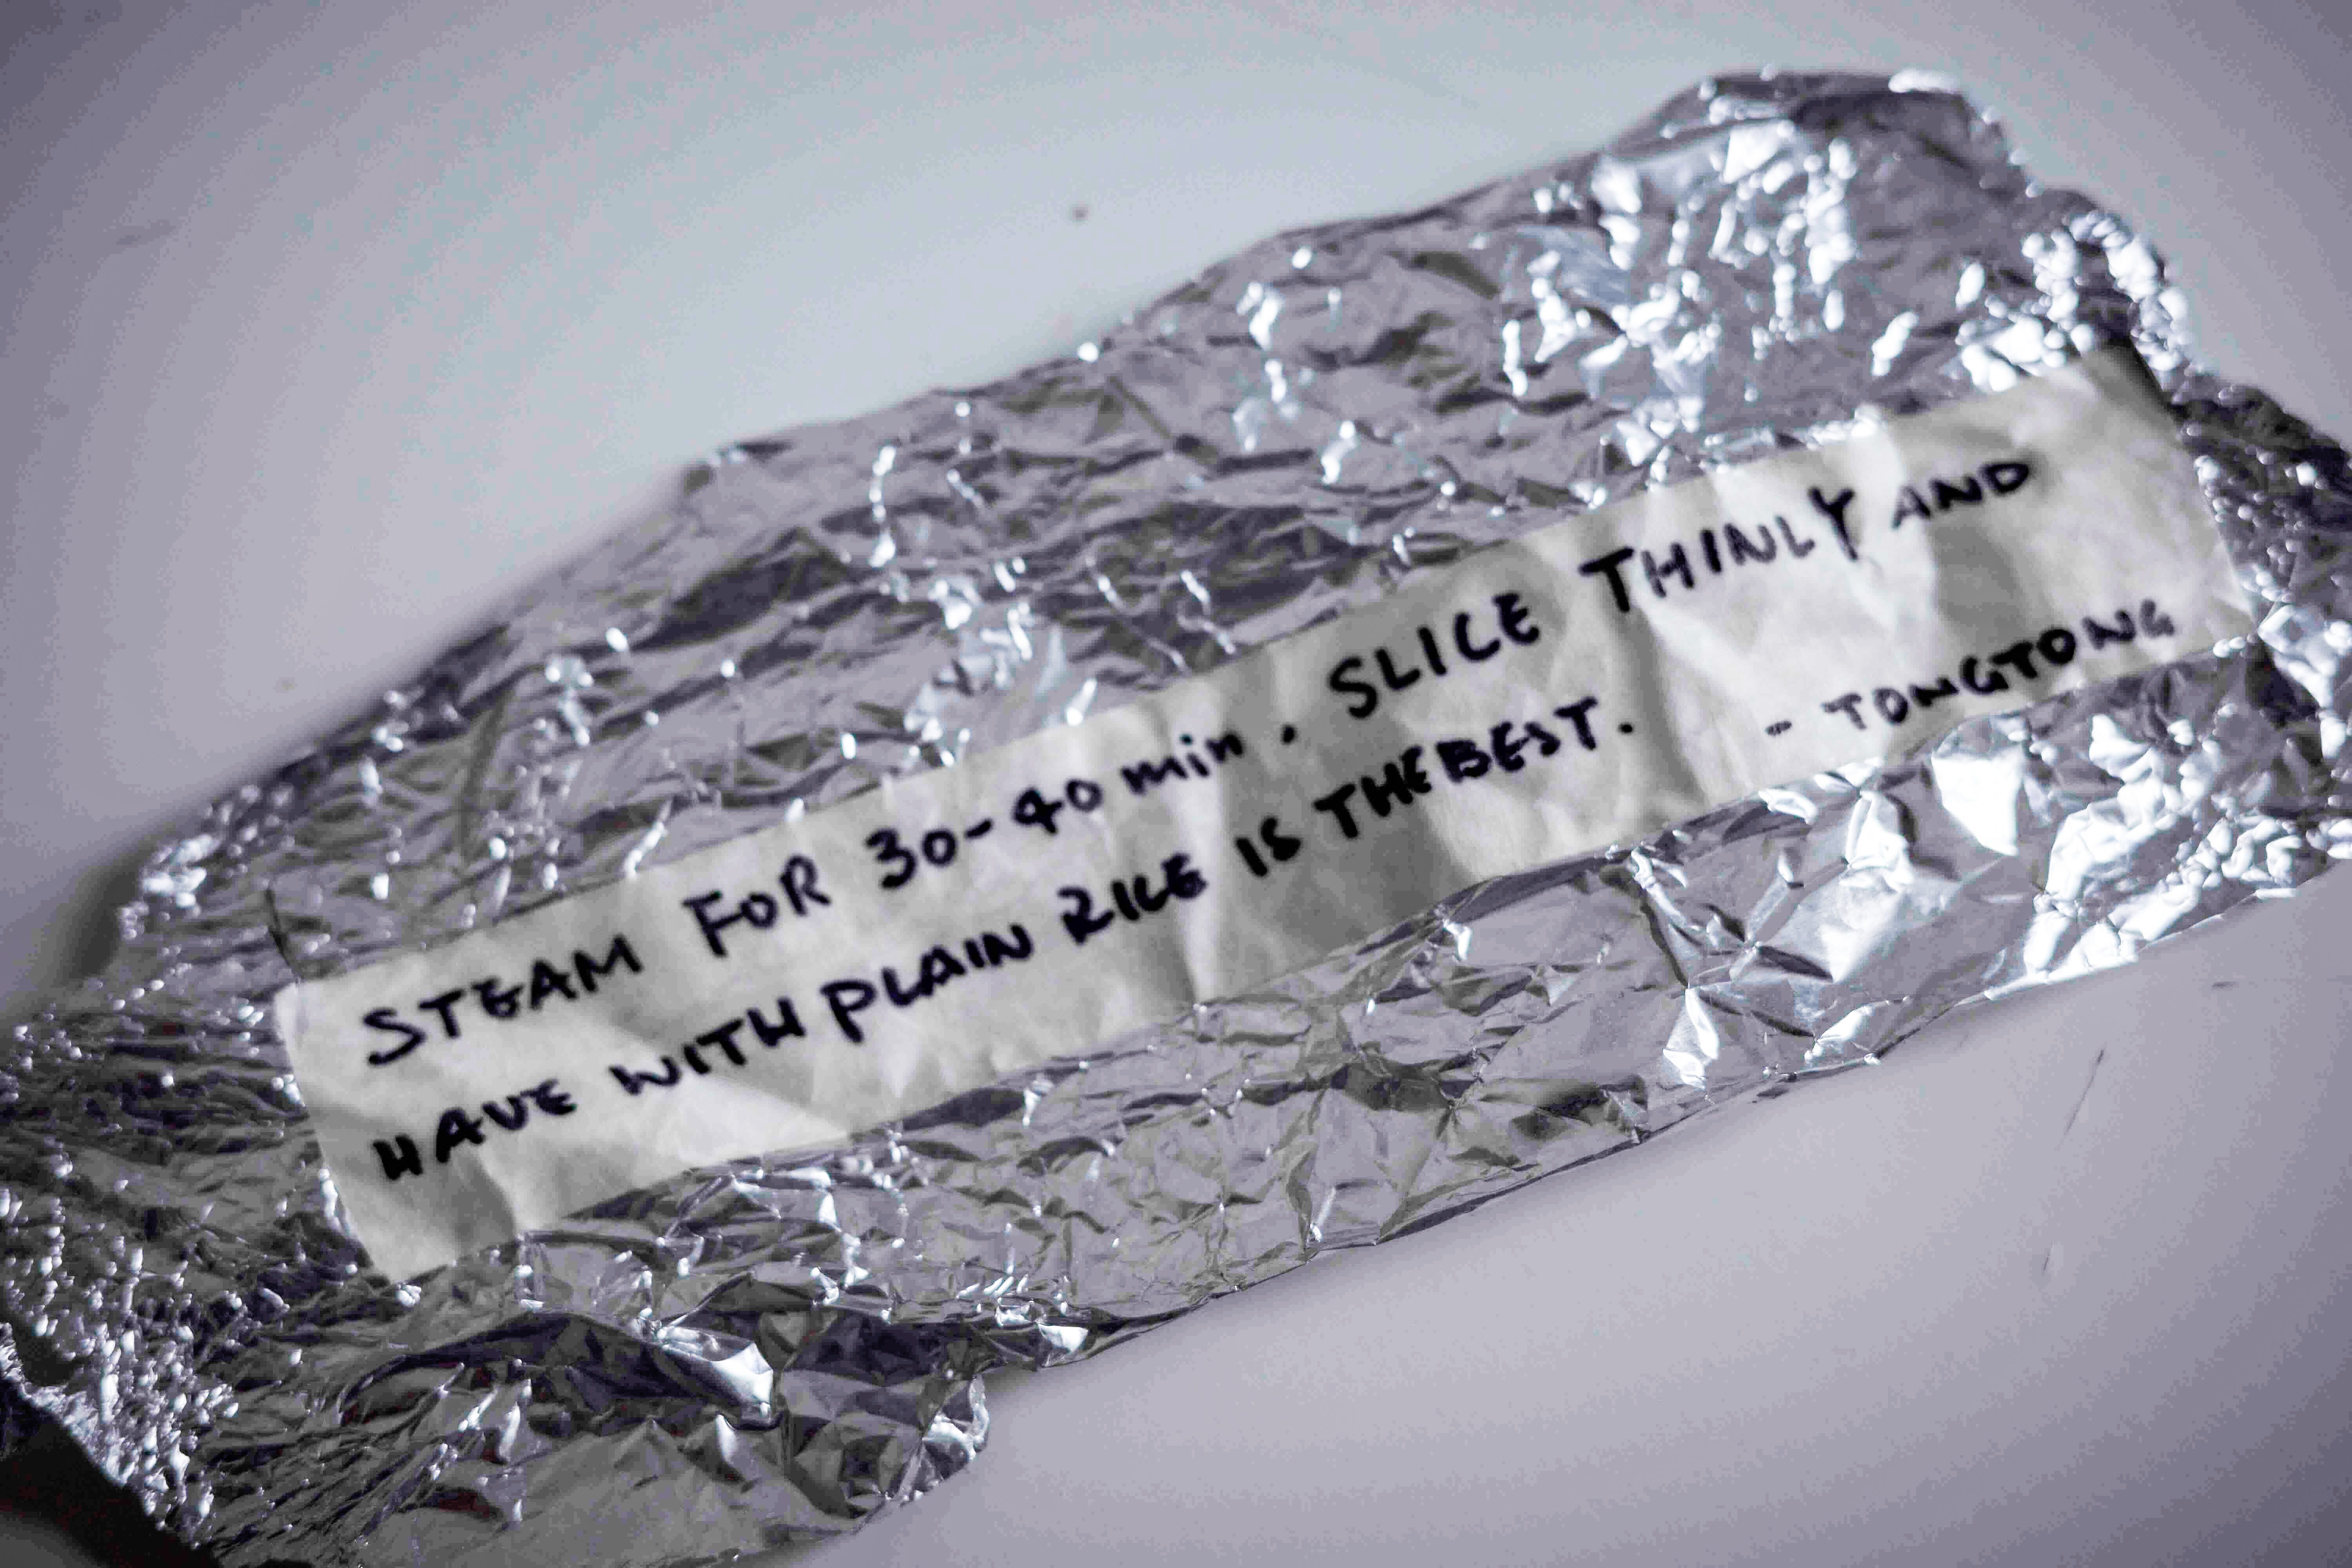 STEAM FOR 30-40 min. SLICE THINLY AND
HAVE WITH PLAIN RICE IS THE BEST. - TONGTONG